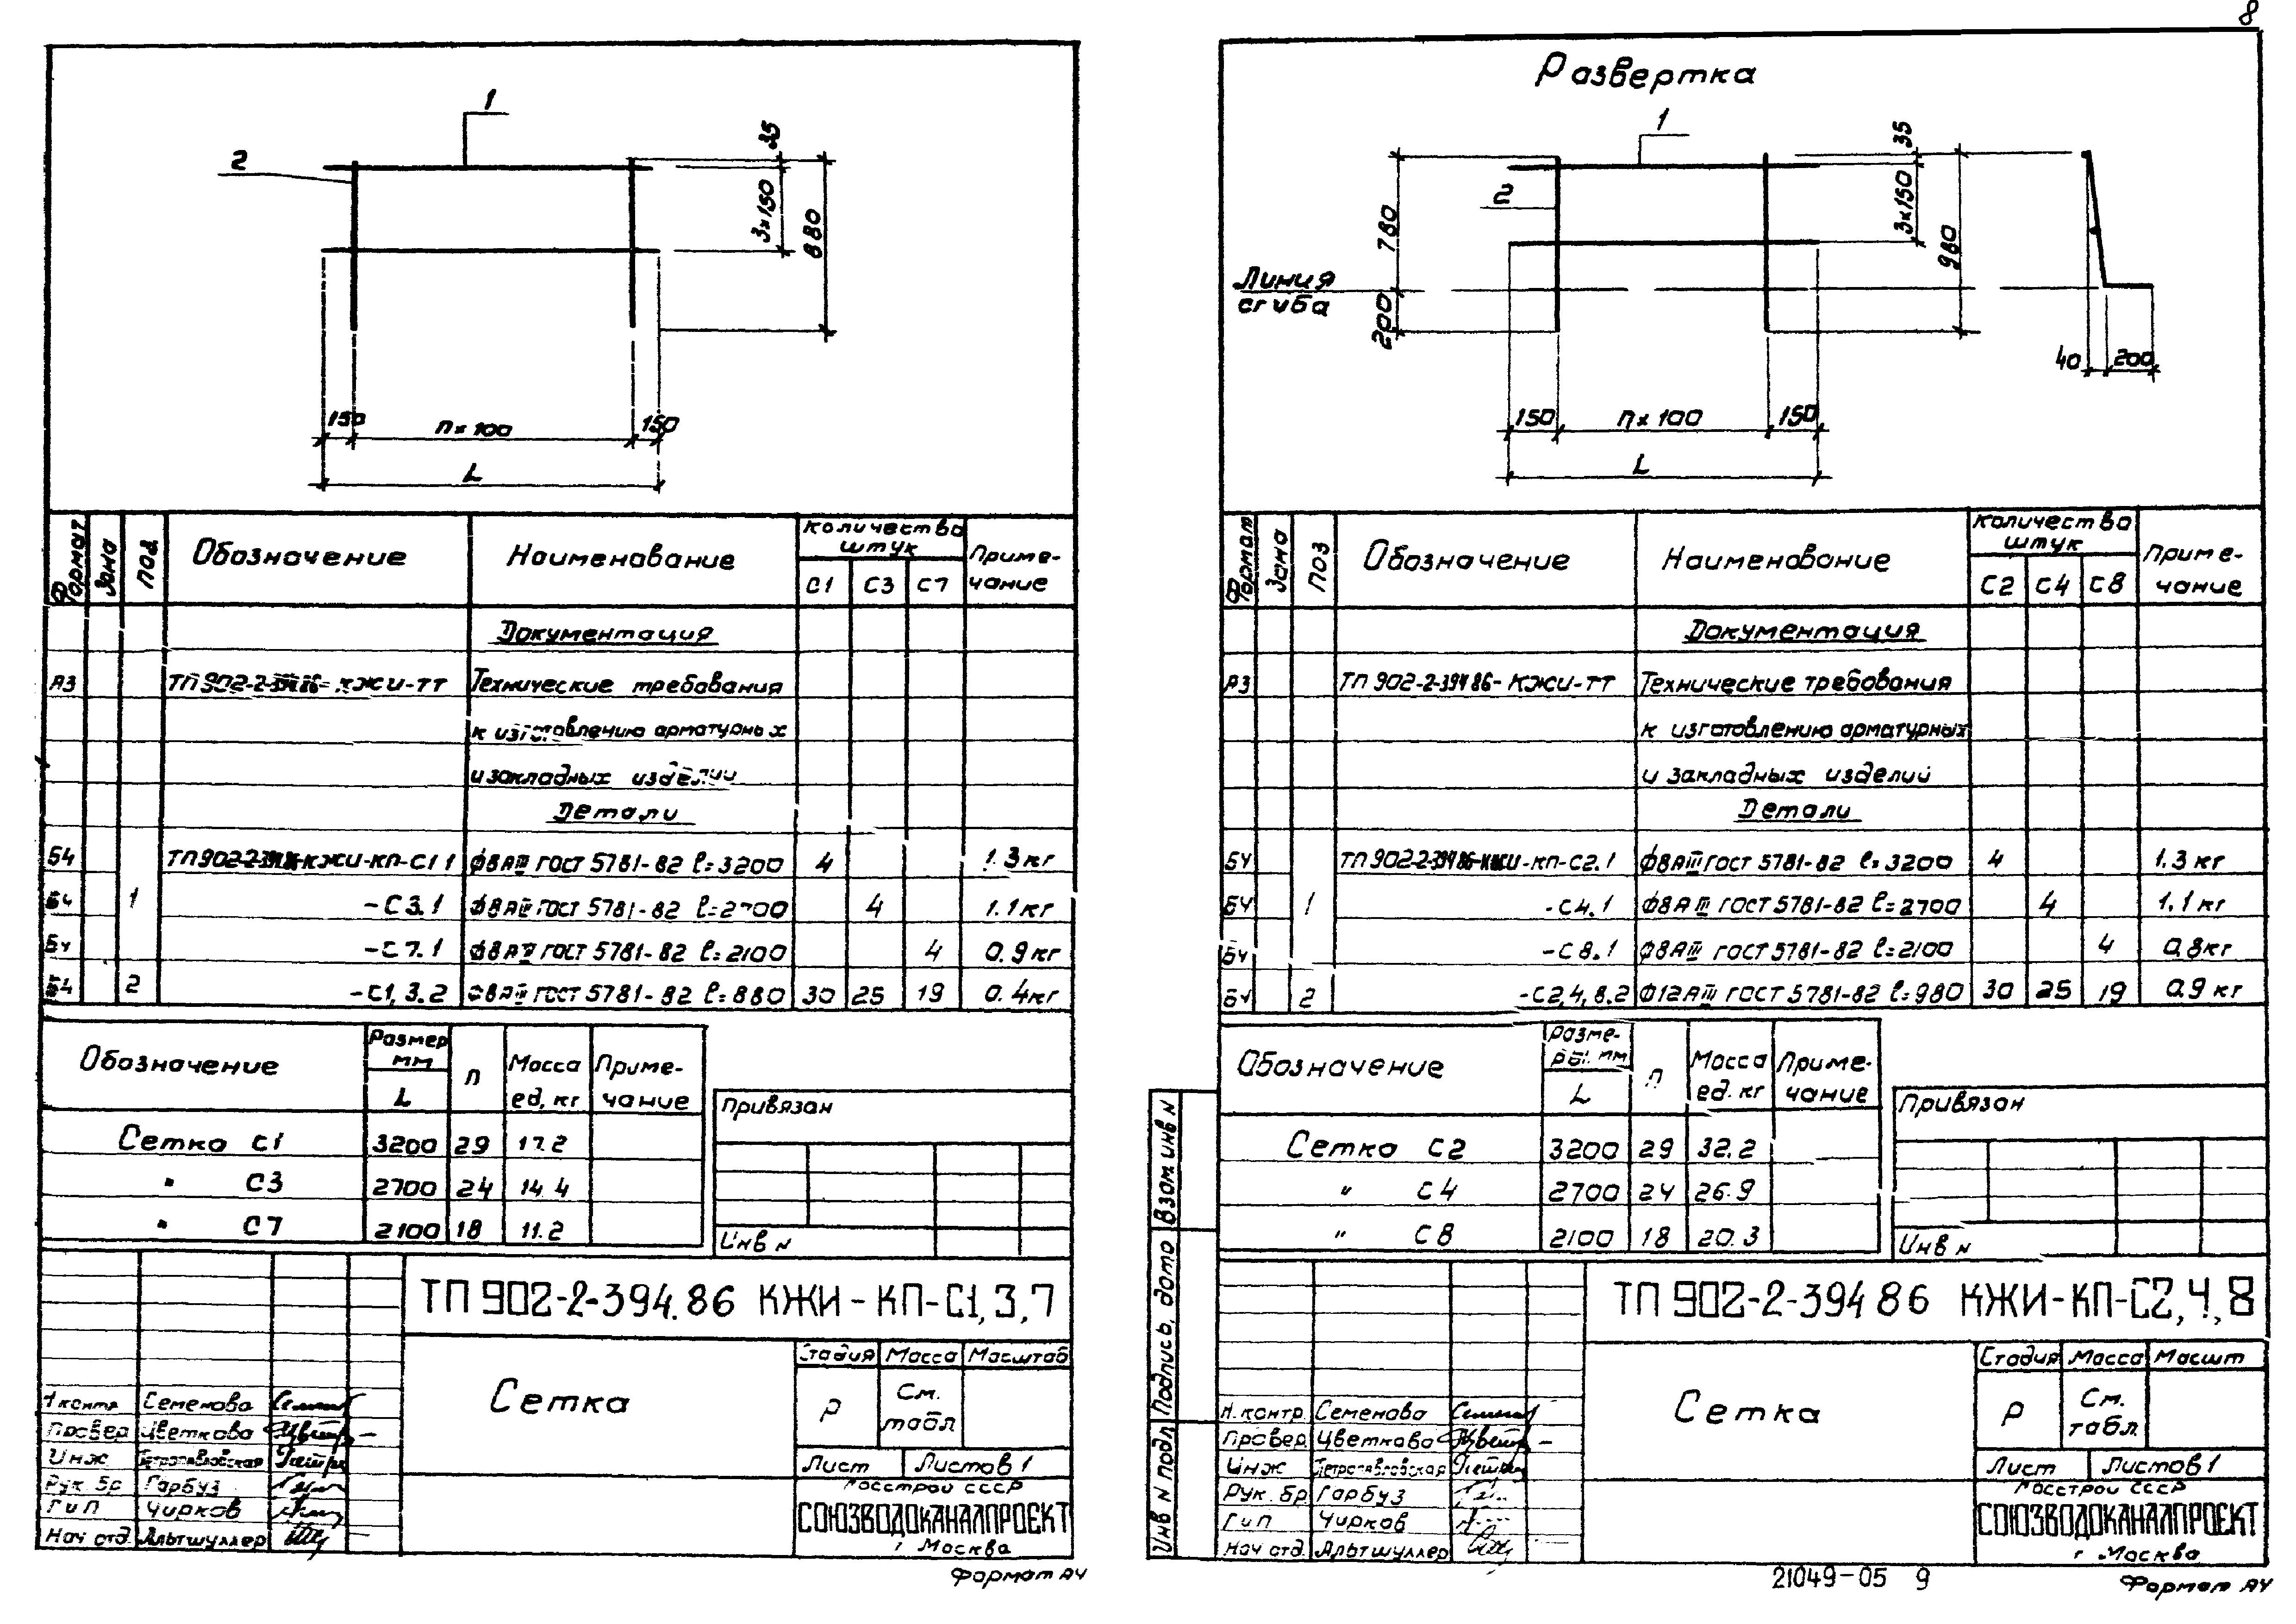 8
1
2
35
3×150
880
150
n×100
150
L
Формат
Зона
Поз.
Обозначение
Наименование
Количество штук
С1
С3
С7
Примечание
Документация
А3 ТП 902-2-394.86-КЖИ-ТТ Технические требования
к изготовлению арматурных
и закладных изделий
Детали
Б4 ТП 902-2-394.86-КЖИ-КП-С1.1 ф8АIII ГОСТ 5781-82 ℓ=3200 4 1.3 кг
Б4 1 -С3.1 ф8АIII ГОСТ 5781-82 ℓ=2700 4 1.1 кг
Б4 -С7.1 ф8АIII ГОСТ 5781-82 ℓ=2100 4 0.9 кг
Б4 2 -С1,3.2 ф8АIII ГОСТ 5781-82 ℓ=880 30 25 19 0.4 кг
Обозначение
Размер мм
L
n
Масса ед, кг
Примечание
Сетка С1 3200 29 17.2
" С3 2700 24 14.4
" С7 2100 18 11.2
Привязан
Инв N
ТП 902-2-394.86 КЖИ-КП-С1,3,7
Сетка
Стадия Масса Масштаб
Р
См. табл
Лист Листов 1
Н контр Семенова
Провер Цветкова
Инж Петропавловская
Рук бр Гарбуз
ГиП Чирков
Нач отд. Альтшуллер
Госстрой СССР
СОЮЗВОДОКАНАЛПРОЕКТ
г Москва
Формат А4
Развертка
1
2
Линия сгиба
780
200
35
3×150
980
40
200
150
n×100
150
L
Формат
Зона
Поз
Обозначение
Наименование
Количество штук
С2
С4
С8
Примечание
Документация
А3 ТП 902-2-394.86-КЖИ-ТТ Технические требования
к изготовлению арматурных
и закладных изделий
Детали
Б4 ТП 902-2-394.86-КЖИ-КП-С2.1 ф8АIII ГОСТ 5781-82 ℓ=3200 4 1.3 кг
Б4 1 -С4.1 ф8АIII ГОСТ 5781-82 ℓ=2700 4 1.1 кг
Б4 -С8.1 ф8АIII ГОСТ 5781-82 ℓ=2100 4 0.8 кг
Б4 2 -С2,4,8.2 ф12АIII ГОСТ 5781-82 ℓ=980 30 25 19 0.9 кг
Обозначение
Размеры. мм
L
n
Масса ед. кг
Примечание
Сетка С2 3200 29 32.2
" С4 2700 24 26.9
" С8 2100 18 20.3
Привязан
Инв N
Взам инв N
Подпись, дата
Инв N подл
ТП 902-2-394 86 КЖИ-КП-С2,4,8
Сетка
Стадия Масса Масшт
Р
См. табл.
Лист Листов 1
Н. контр. Семенова
Провер Цветкова
Инж Петропавловская
Рук. бр Гарбуз
ГиП Чирков
Нач отд. Альтшуллер
Госстрой СССР
СОЮЗВОДОКАНАЛПРОЕКТ
г Москва
21049-05 9
Формат А4